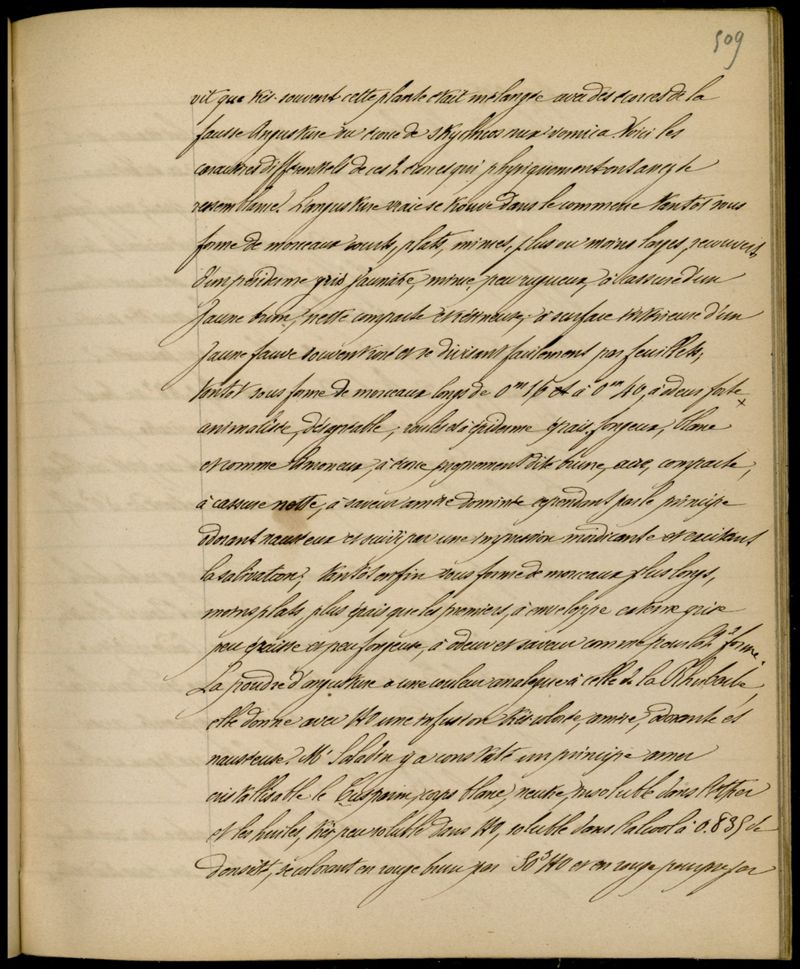 509
vit que très souvent cette plante était mélangée avec des écorces de la
fausse Angusture ou écorce de Strychnos nux vomica. Voici les
caractères différentiels de ces 2 écorces qui physiquement ont assez de
ressemblance. L'angusture vraie se trouve dans le commerce tantôt sous
forme de morceaux courts, plats, minces, plus ou moins larges, recouverts
d'un périderme gris jaunâtre, mince, peu rugueux, à cassure d'un
jaune brun, nette compacte et résineuse; à surface intérieure d'un
jaune fauve souvent rosé et se divisant facilement par feuillets;
tantôt sous forme de morceaux longs de 0m 15 à 0m 40, à odeur forte
animalisée, désagréable; roulés à épiderme épais, fongueux, blanc
et comme limoneux, à écorce proprement dite brune, dure, compacte,
à cassure nette, à saveur amère dominée cependant par le principe
odorant nauséeux et suivie par une impression mordicante et excitant
la salivation; tantôt enfin sous forme de morceaux plus longs,
moins plats plus épais que les premiers, à enveloppe externe grise
peu épaisse et peu fongueuse, à odeur et saveur comme pour la 2e forme.
La poudre d'angusture a une couleur analogue à celle de la Rhubarbe,
elle donne avec HO une infusion très colorée, amère, odorante et
nauséeuse. Mr Saladin y a constaté un principe amer
cristallisable le Cusparin, corps blanc, neutre, insoluble dans l'éther
et les huiles, très peu soluble dans HO, soluble dans l'alcool à 0.835 de
densité, se colorant en rouge brun par SO3HO et en rouge pourpre par